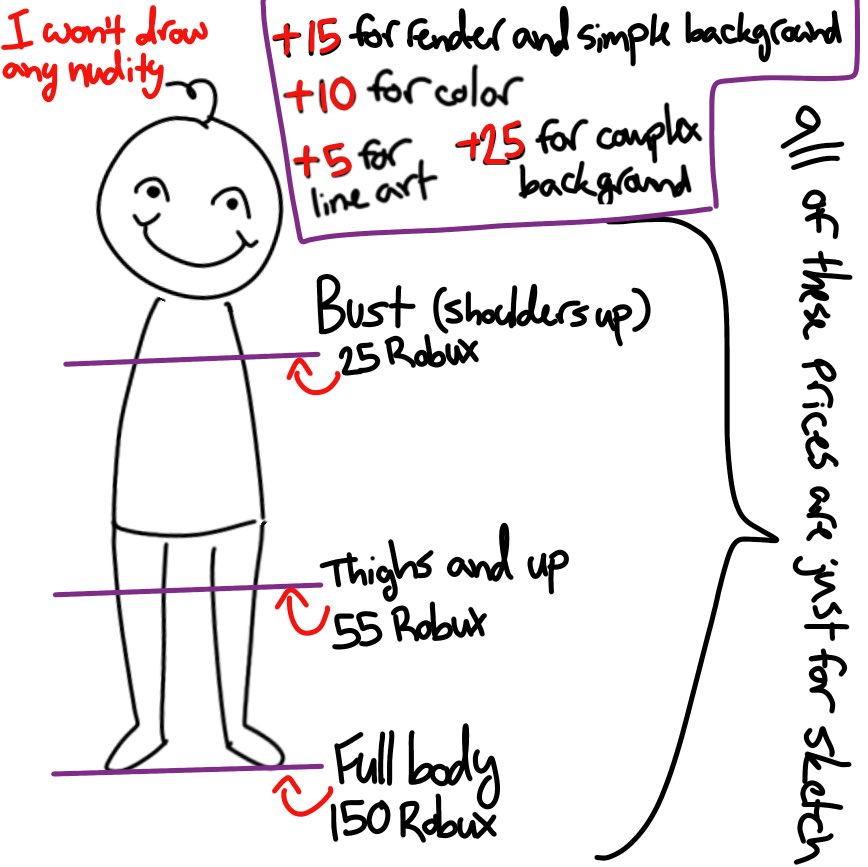 I won't draw
any nudity
+15 for render and simple background
+10 for color
+5 for
line art
+25 for complex
background
Bust (shoulders up)
25 Robux
Thighs and up
55 Robux
Full body
150 Robux
all of these prices are just for sketch